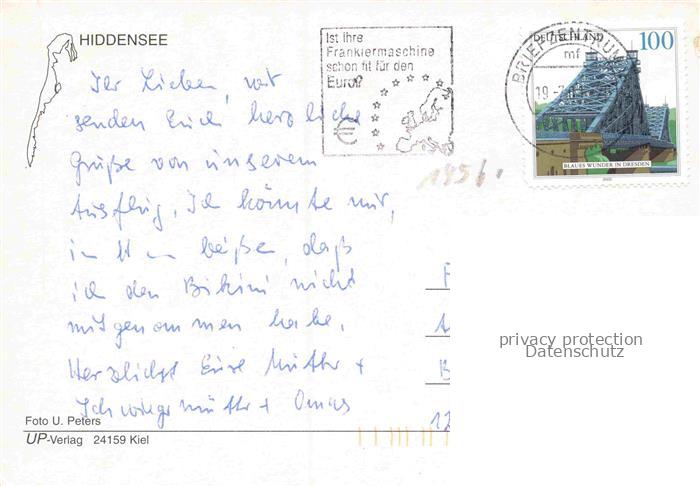 HIDDENSEE
Ihr Lieben, wir
senden Euch herzliche
Grüße von unserem
Ausflug. Ich könnte mir,
in beißen, daß
ich den Bikini nicht
mitgenommen habe.
Herzlichst Eure Mutter +
Schwiegermutter + Omas
Foto U. Peters
UP-Verlag 24159 Kiel
Ist Ihre
Frankiermaschine
schon fit für den
Euro?
€
BRIEFZENTRUM
mf
19
DEUTSCHLAND
100
BLAUES WUNDER IN DRESDEN
2000
privacy protection
Datenschutz